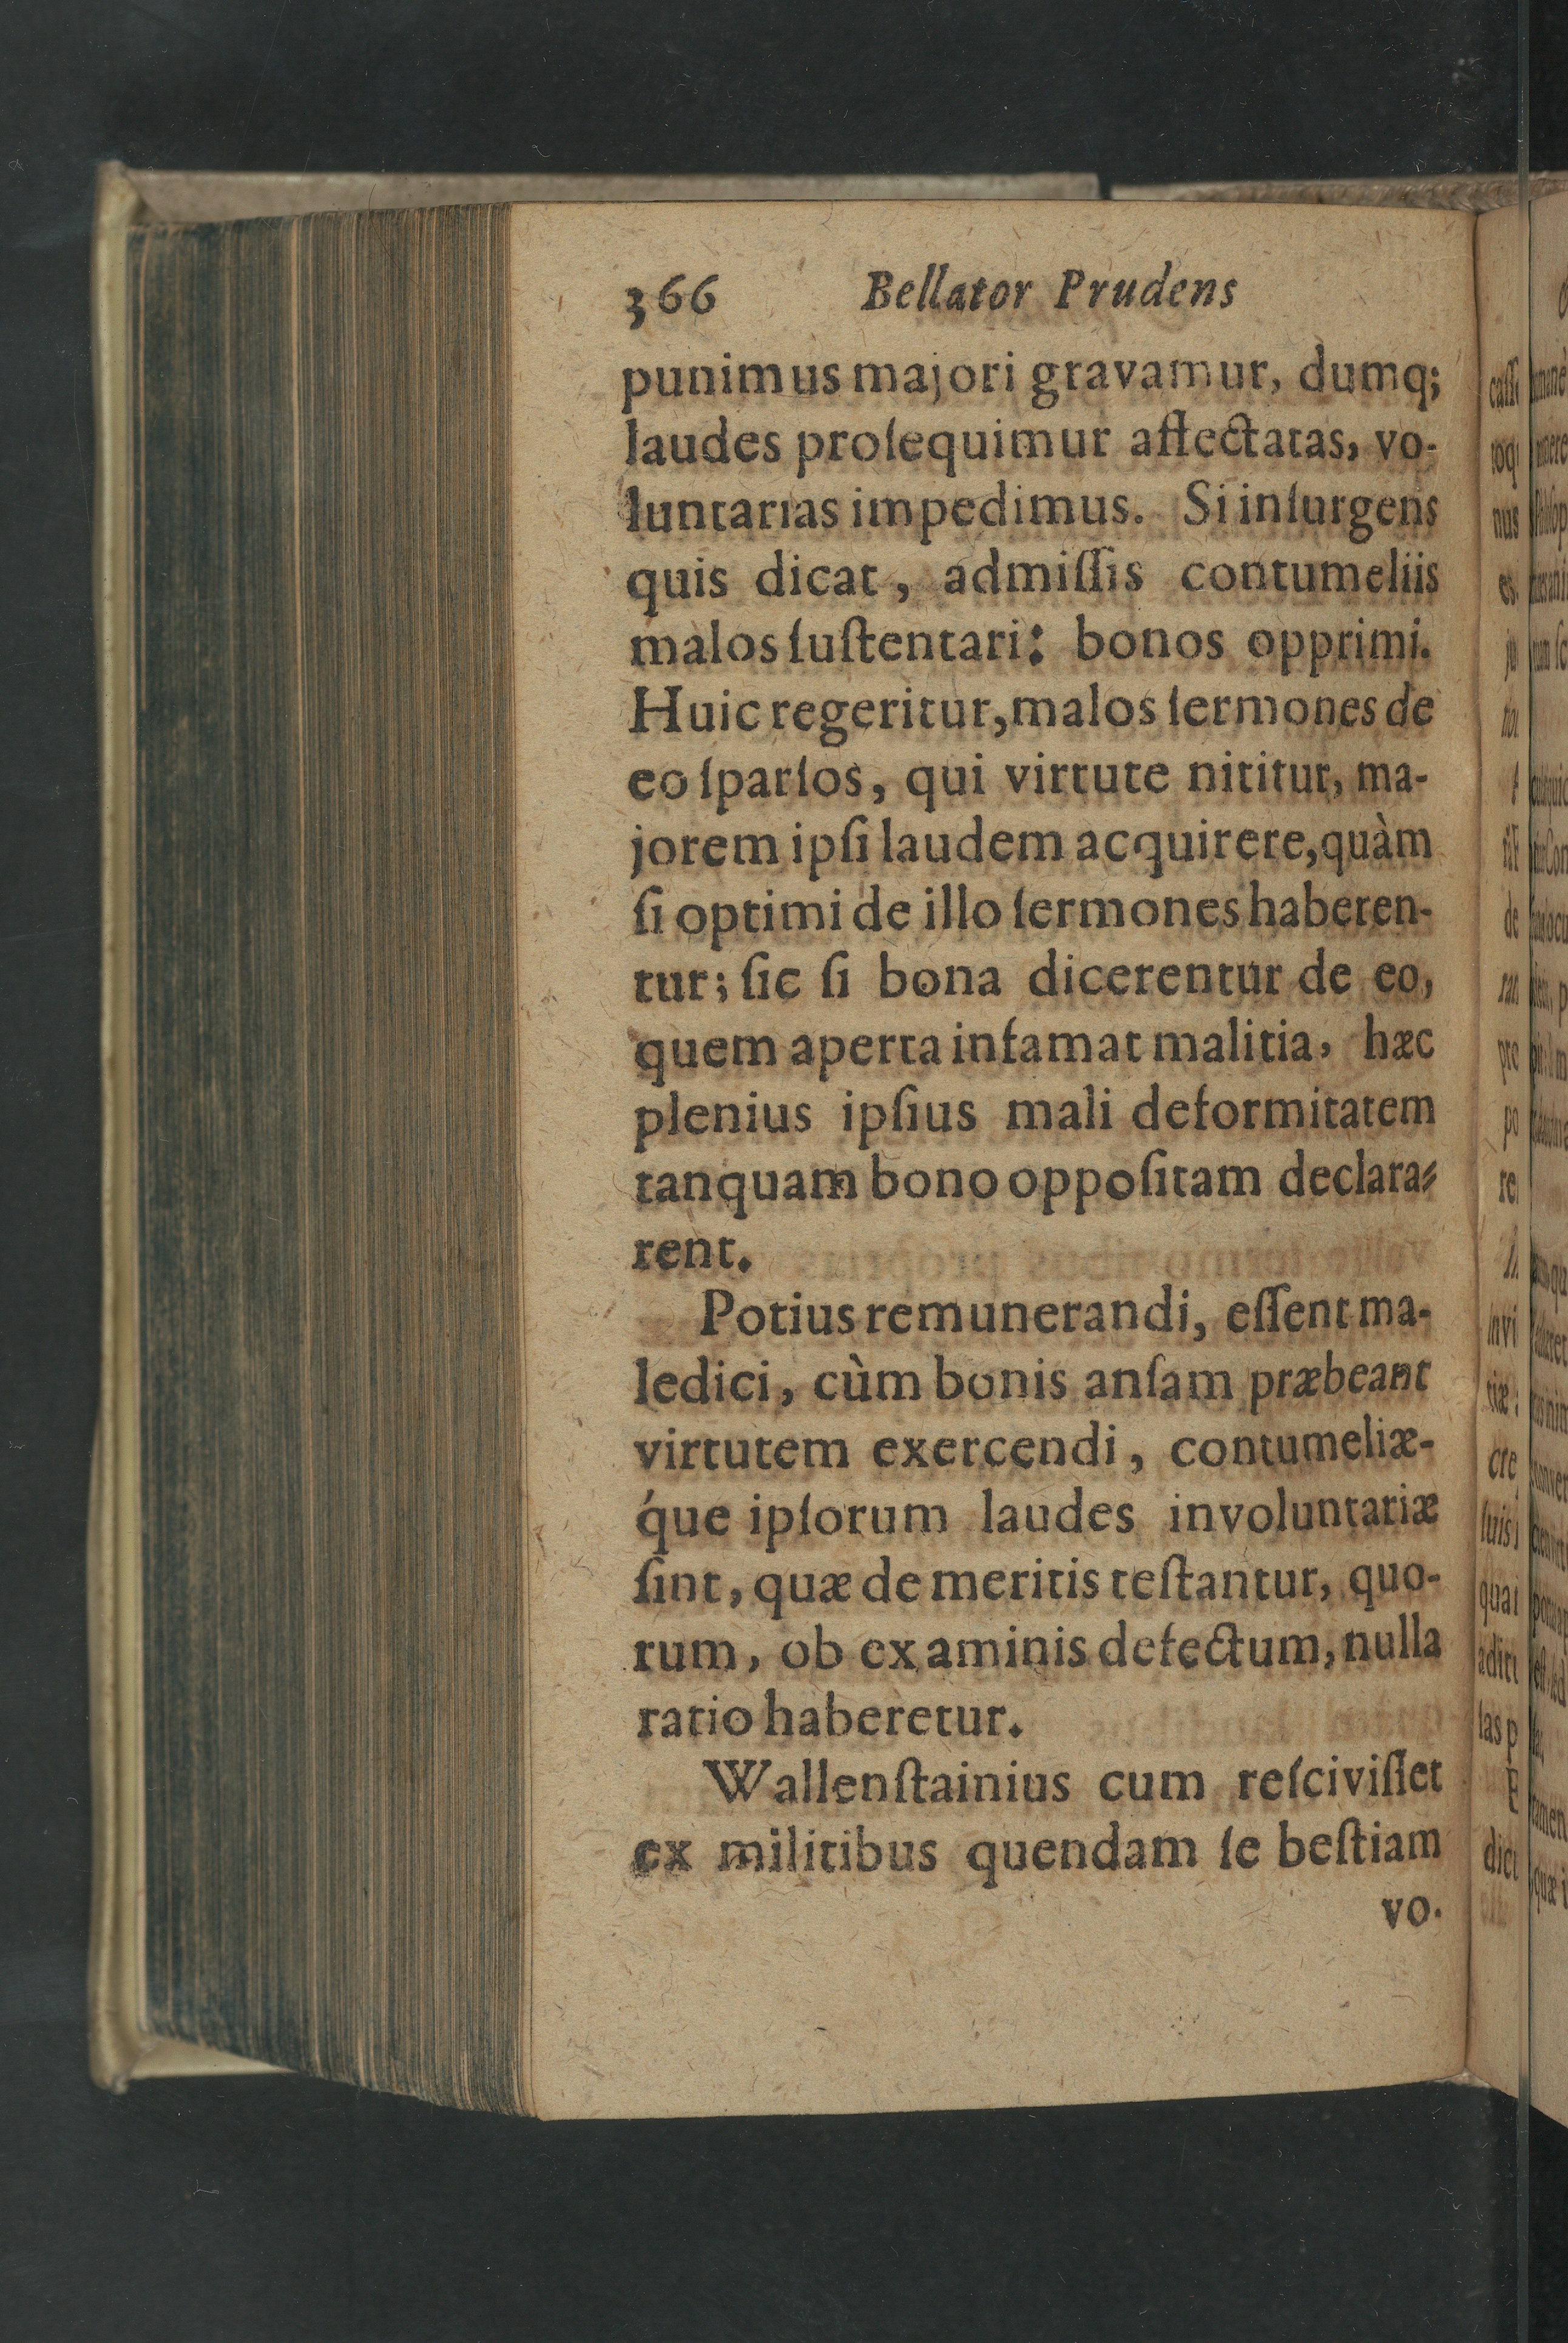 366 Bellator Prudens
punimus majori gravamur, dumq;
laudes proſequimur affectatas, vo-
luntarias impedimus. Si inſurgens
quis dicat, admiſſis contumeliis
malos ſuſtentari: bonos opprimi.
Huic regeritur, malos ſermones de
eo ſparſos, qui virtute nititur, ma-
jorem ipſi laudem acquirere, quàm
ſi optimi de illo ſermones haberen-
tur; ſic ſi bona dicerentur de eo,
quem aperta infamat malitia, hæc
plenius ipſius mali deformitatem
tanquam bono oppoſitam declara-
rent.
Potius remunerandi, eſſent ma-
ledici, cùm bonis anſam præbeant
virtutem exercendi, contumeliæ-
q́ue ipſorum laudes involuntariæ
ſint, quæ de meritis teſtantur, quo-
rum, ob examinis defectum, nulla
ratio haberetur.
Wallenſtainius cum reſciviſſet
ex militibus quendam ſe beſtiam
vo-